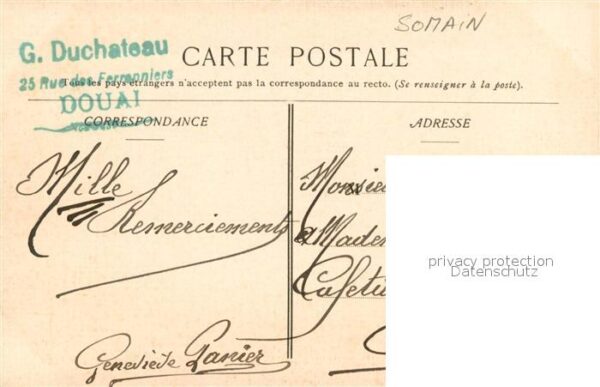 SOMAIN
G. Duchateau
25 Rue des Ferronniers
DOUAI
CARTE POSTALE
Tous les pays étrangers n'acceptent pas la correspondance au recto. (Se renseigner à la poste).
CORRESPONDANCE
ADRESSE
Mille
Remerciements
Geneviève Panier
Monsie
Madem
Cafetie
privacy protection
Datenschutz